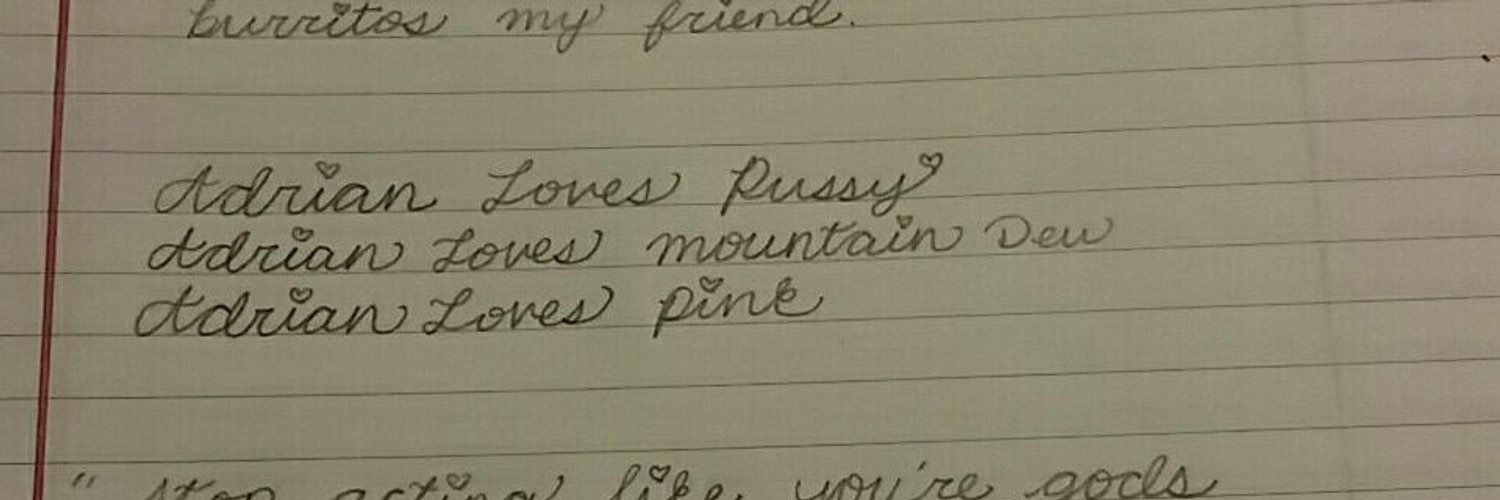 burritos my friend.
Adrian Loves Pussy
Adrian Loves mountain Dew
Adrian Loves pink
" stop acting like you're gods